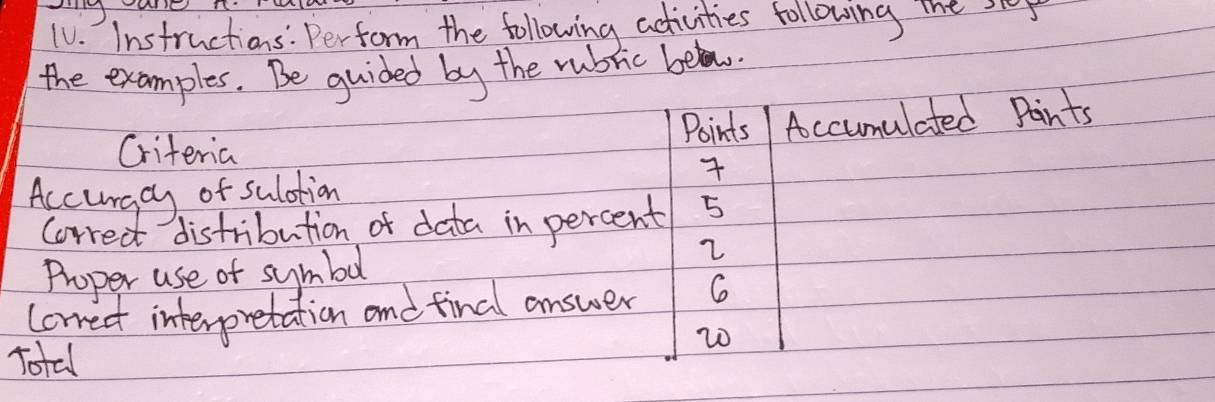 IV. Instructions: Perform the following activities following the
the examples. Be guided by the rubric below.
Criteria | Points | Accumulated Points
Accuracy of sulotion 7
Correct distribution of data in percent 5
Proper use of symbol 2
Correct interpretation and final answer 6
Total 20